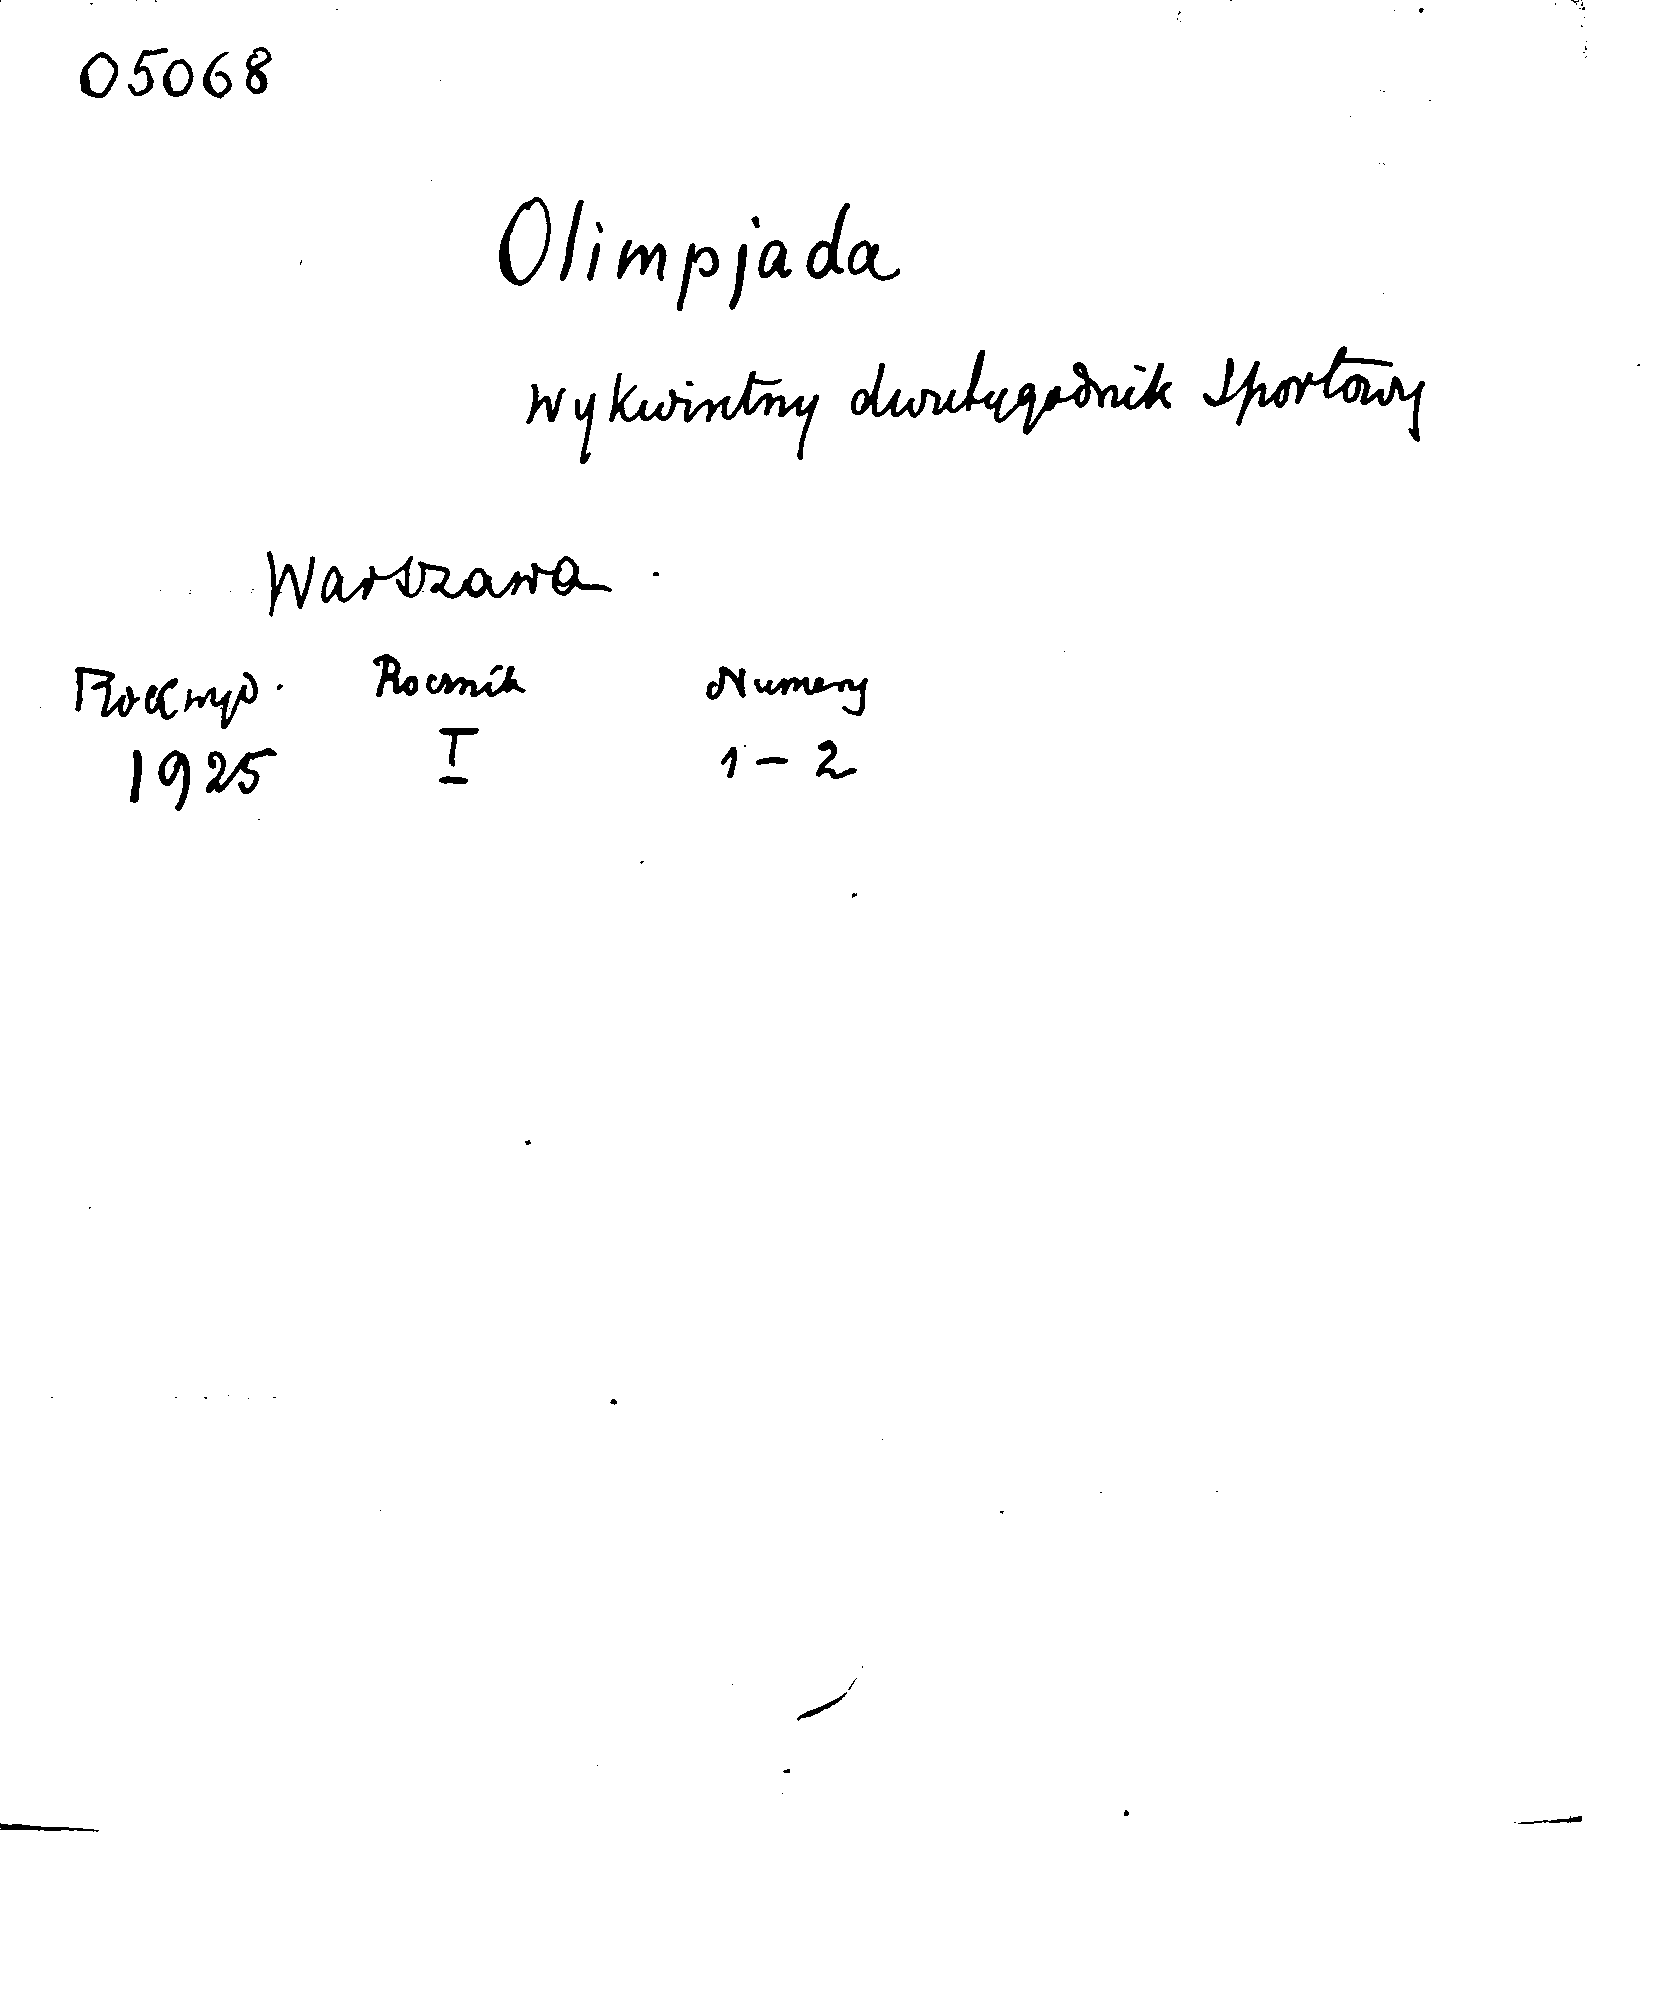 05068
Olimpjada
wykwintny dwutygodnik sportowy
Warszawa
Rok wyd. Rocznik Numery
1925 I 1-2